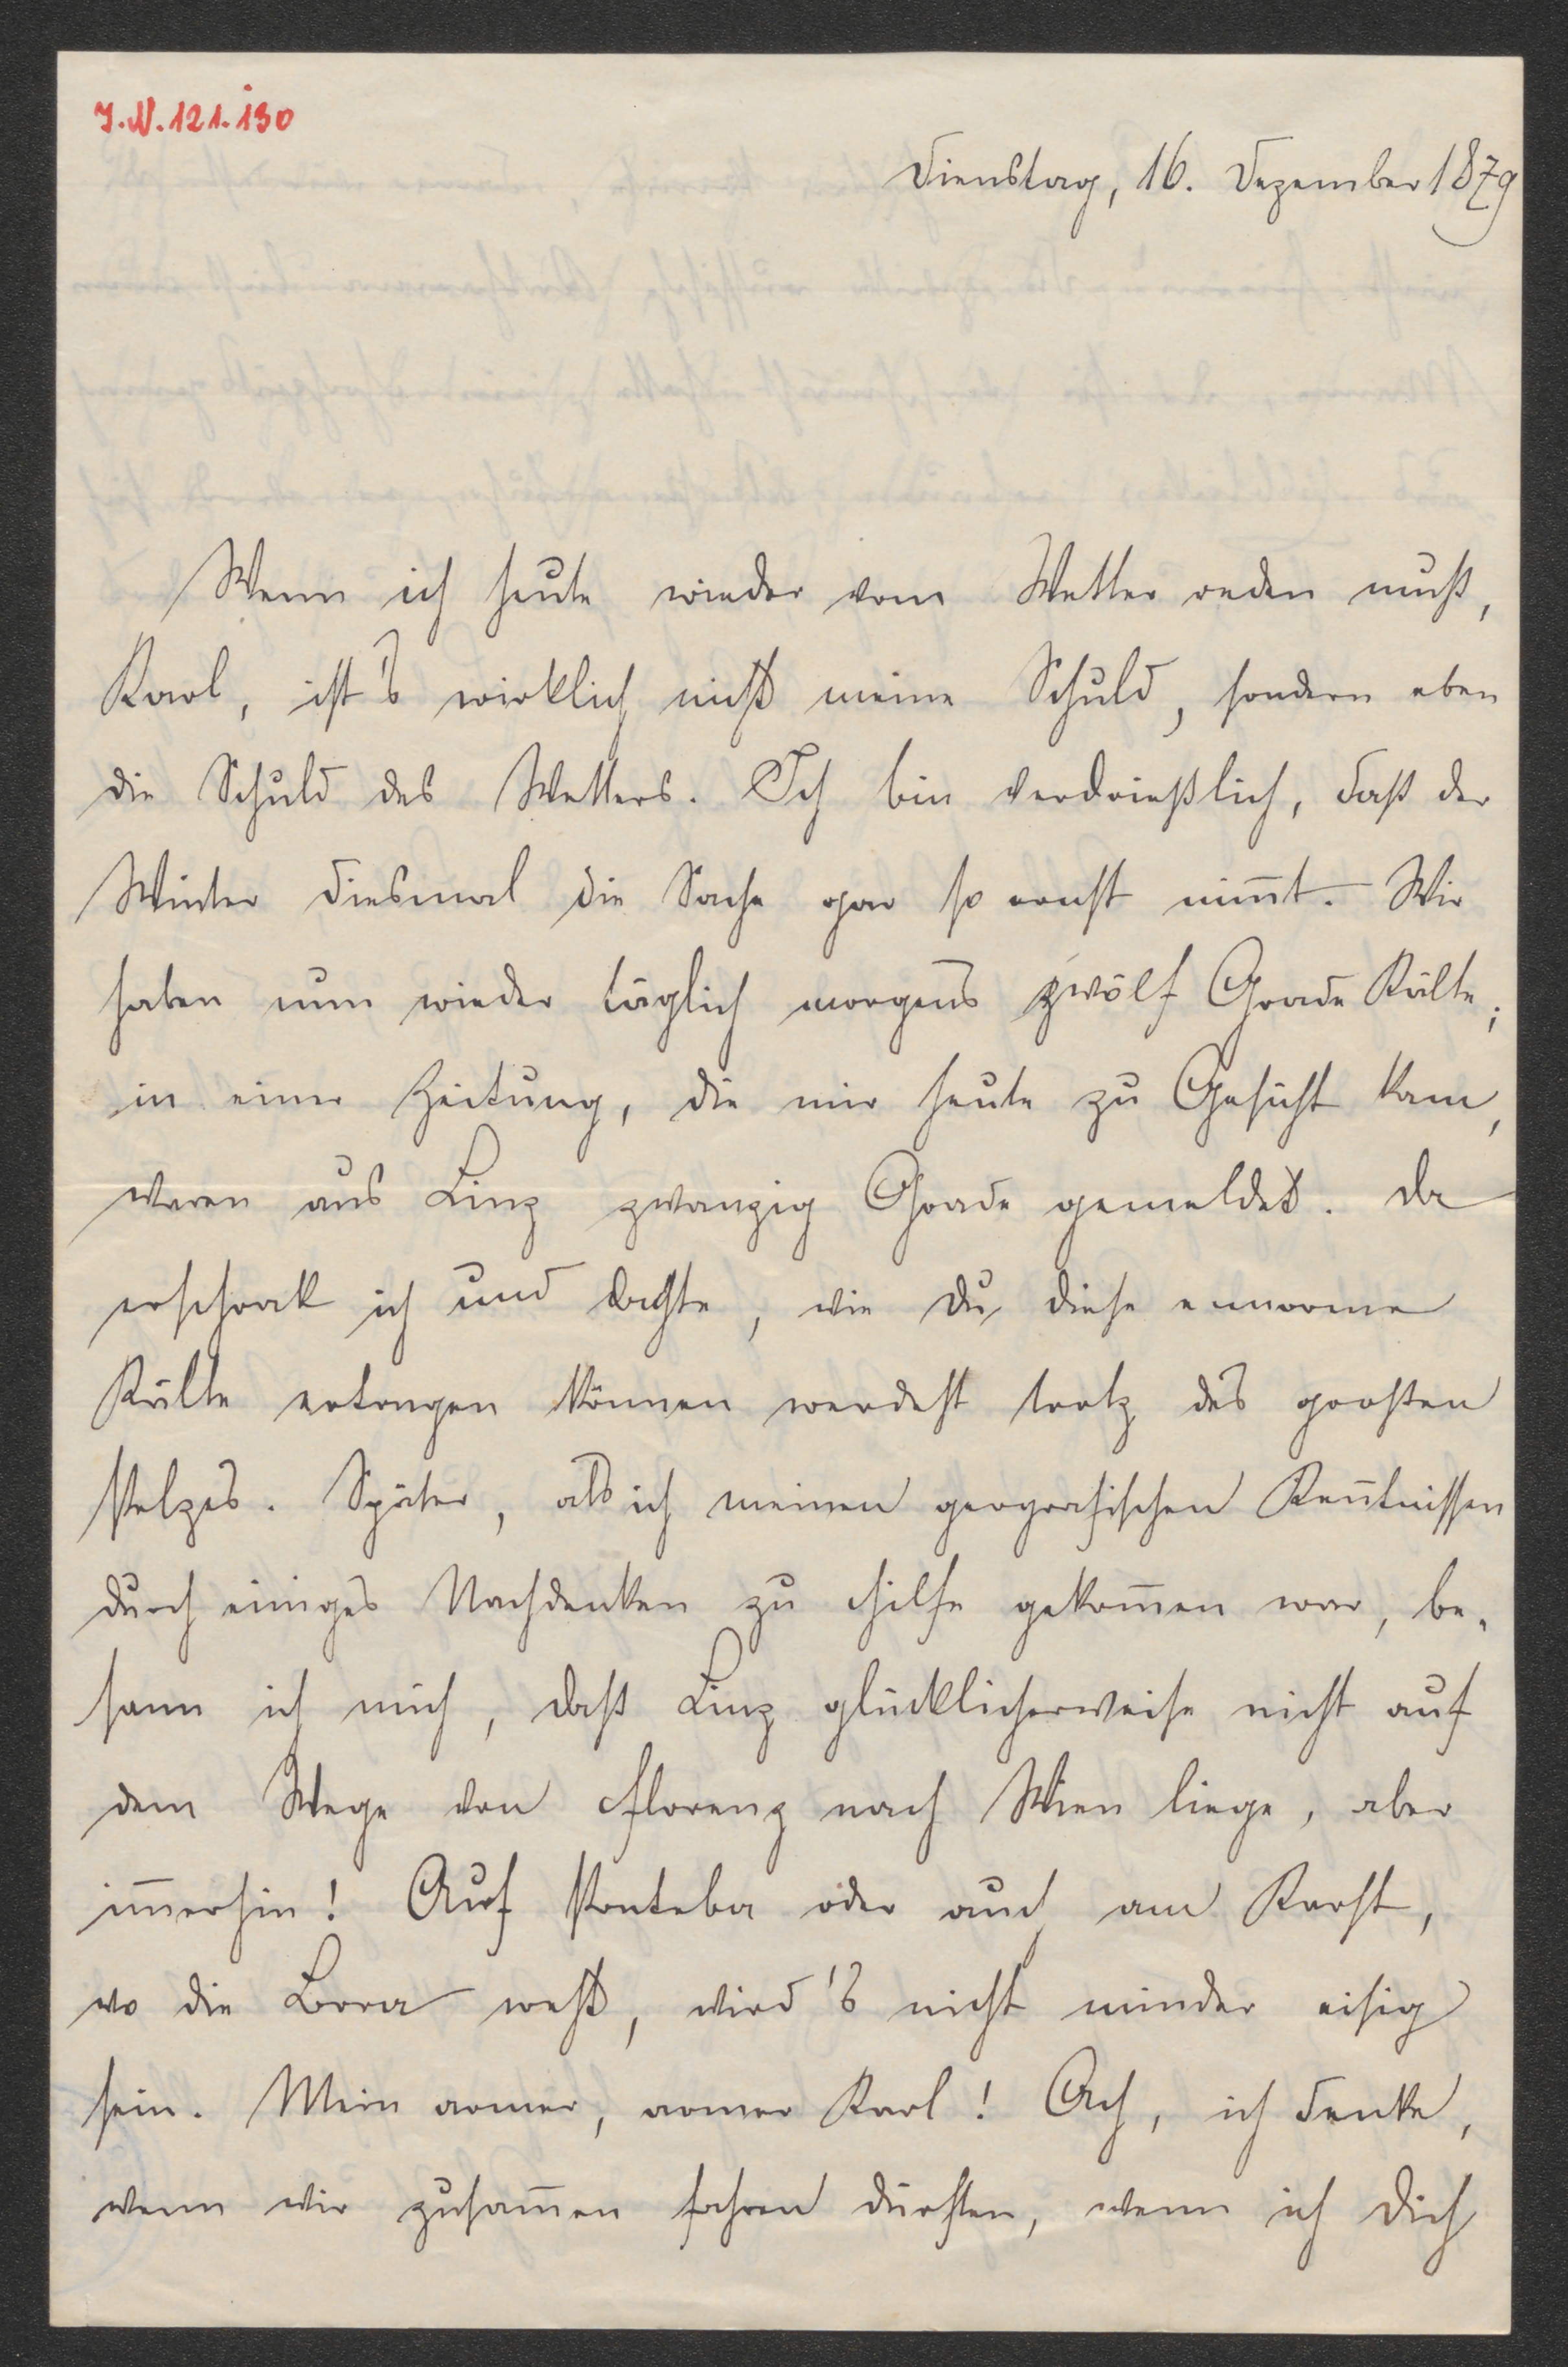 J.N. 121.130
Dienstag, 16. Dezember 1879
Wenn ich heute wieder vom Wetter reden muß,
Karl, ist's wirklich nicht meine Schuld, sondern eben
die Schuld des Wetters. Ich bin verdrießlich, daß der
Winter diesmal die Sache gar so ernst nim̄t. Wir
haben nun wieder täglich morgens zwölf Grade Kälte;
in einer Zeitung, die mir heute zu Gesicht kam,
waren aus Linz zwanzig Grade gemeldet. Da
erschrak ich und dachte, wie Du diese ennorme
Kälte ertragen können werdest trotz des großen
Pelzes. Später, als ich meinen geografischen Ken̄tnissen
durch einiges Nachdenken zu Hilfe gekom̄en war, be-
sann ich mich, daß Linz glücklicherweise nicht auf
dem Wege von Florenz nach Wien liege, aber
im̄erhin! Auf Ponteba oder auch am Karst,
wo die Bora weht, wird's nicht minder eisig
sein. Mein armer, armer Karl! Ach, ich denke,
wenn wir zusam̄en fahren dürften, wenn ich Dich